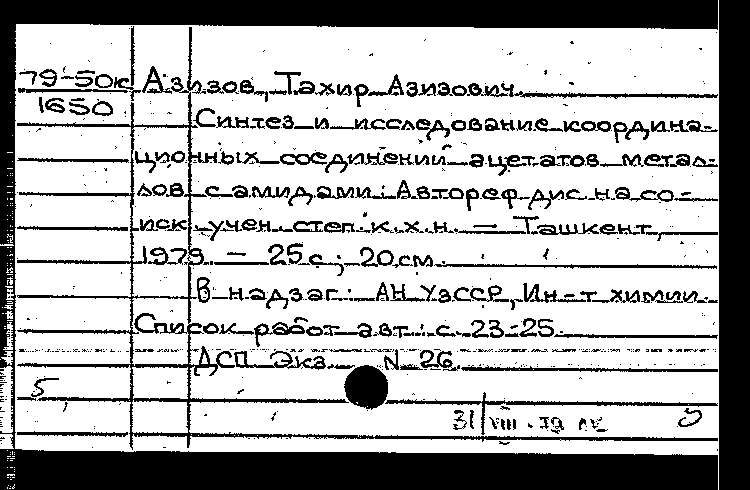 79-50к Азизов, Тахир Азизович.
1650 Синтез и исследование координа-
ционных соединений ацетатов метал-
лов с амидами: Автореф дис. на со-
иск учен. степ. к.х.н. — Ташкент,
1979. — 25 с; 20 см.
В надзаг.: АН УзССР, Ин-т химии.
Список работ авт.: с. 23-25.
ДСП Экз. N 26.
5
31/VIII - 79